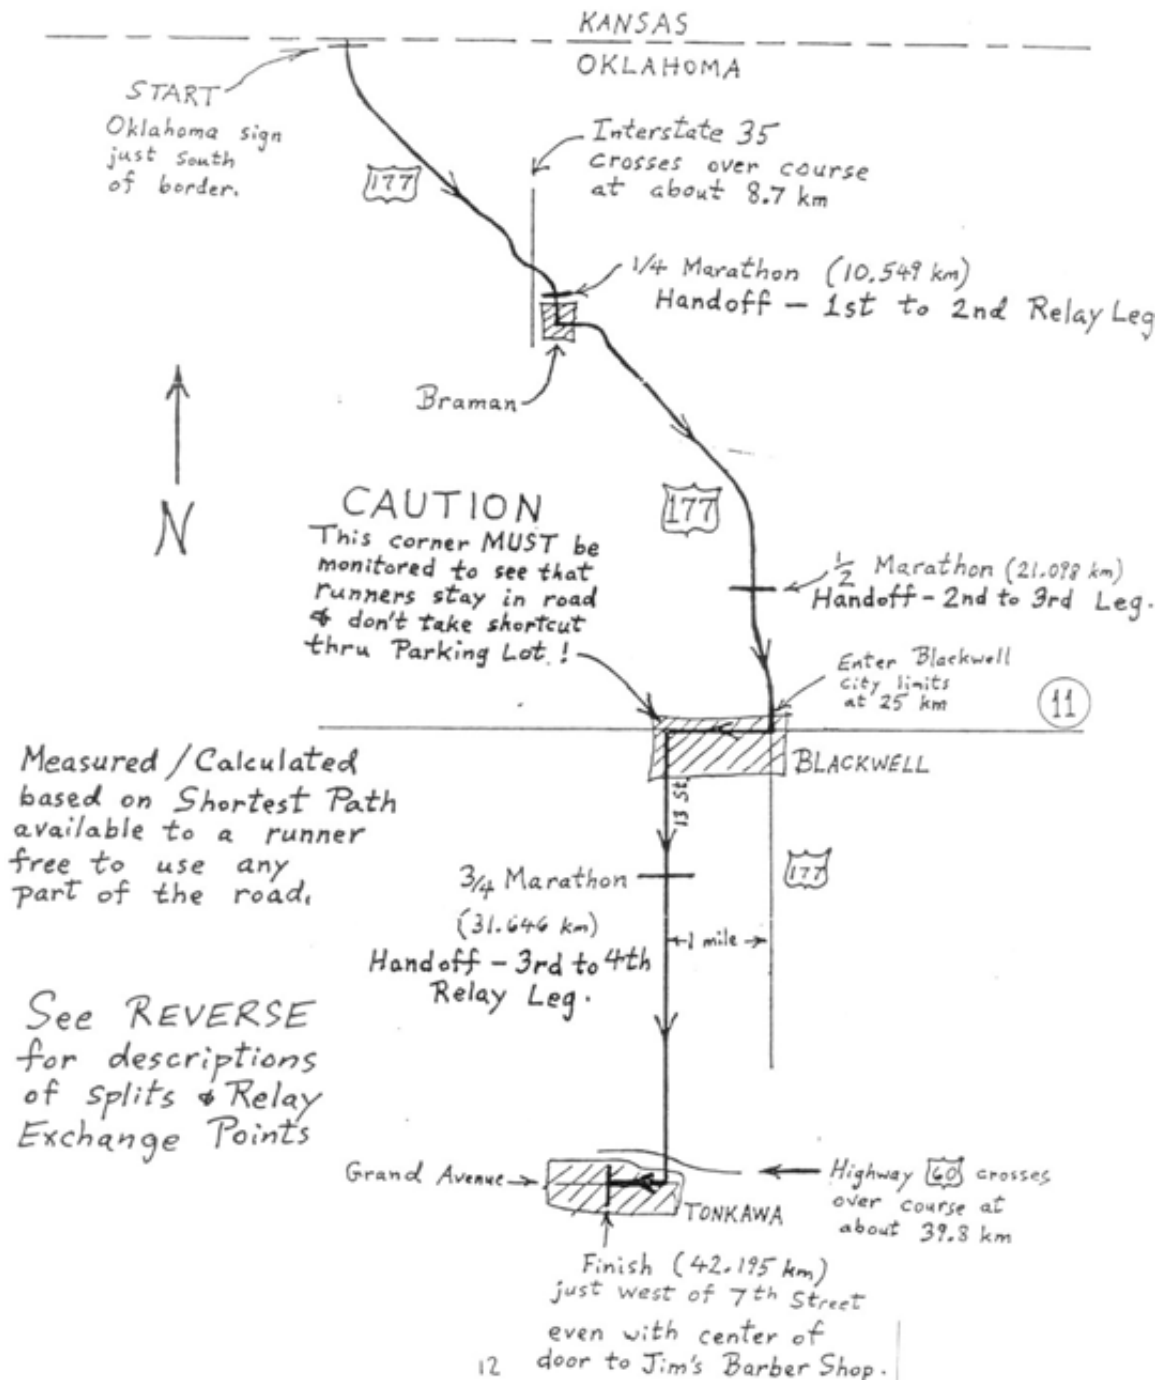 KANSAS
OKLAHOMA
START
Oklahoma sign
just south
of border.
Interstate 35
crosses over course
at about 8.7 km
177
1/4 Marathon (10.549 km)
Handoff – 1st to 2nd Relay Leg
Braman
N
CAUTION
This corner MUST be
monitored to see that
runners stay in road
& don't take shortcut
thru Parking Lot !
177
1/2 Marathon (21.098 km)
Handoff - 2nd to 3rd Leg.
Enter Blackwell
city limits
at 25 km
11
BLACKWELL
Measured / Calculated
based on Shortest Path
available to a runner
free to use any
part of the road.
13 St.
177
3/4 Marathon
(31.646 km)
Handoff - 3rd to 4th
Relay Leg.
1 mile
See REVERSE
for descriptions
of splits & Relay
Exchange Points
Grand Avenue
TONKAWA
Highway 60 crosses
over course at
about 39.8 km
Finish (42.195 km)
just west of 7th Street
even with center of
door to Jim's Barber Shop.
12